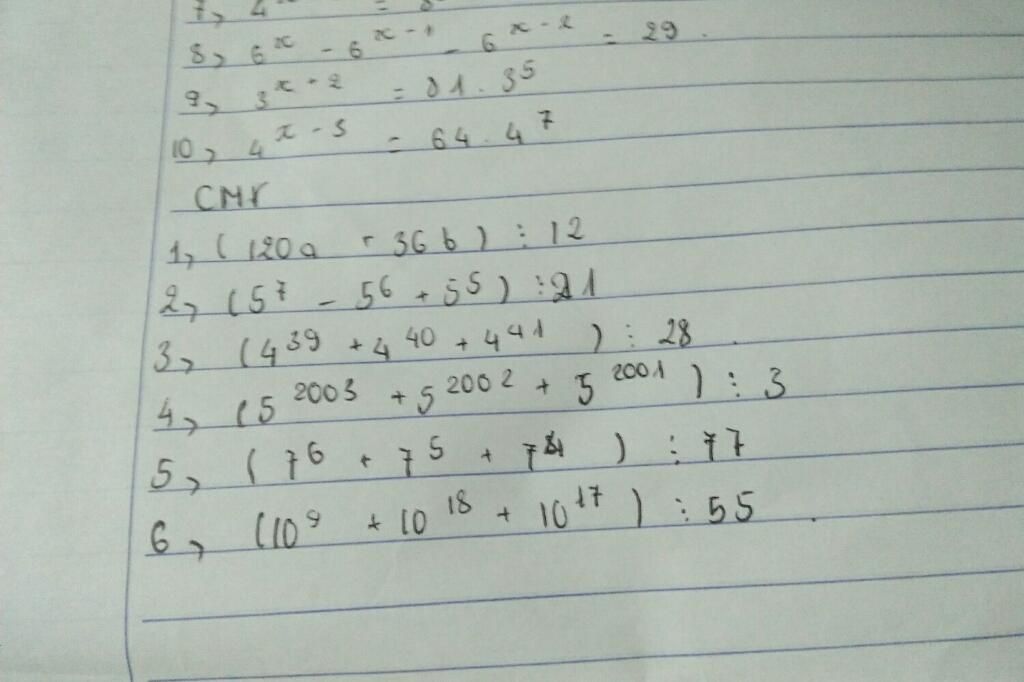 7, 4
8, 6^x - 6^(x-1) - 6^(x-2) = 29.
9, 3^(x+2) = 81 . 3^5
10, 4^(x-3) = 64 . 4^7
CMR
1, (120a + 36b) ⋮ 12
2, (5^7 - 5^6 + 5^5) ⋮ 21
3, (4^39 + 4^40 + 4^41) ⋮ 28.
4, (5^2003 + 5^2002 + 5^2001) ⋮ 3
5, (7^6 + 7^5 + 7^4) ⋮ 77
6, (10^9 + 10^18 + 10^17) ⋮ 55.